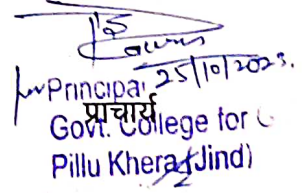 25/10/2023.
Principal
प्राचार्य
Govt. College for
Pillu Khera (Jind)